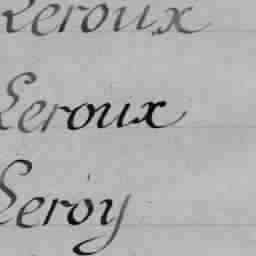 Leroux
Leroux
Leroy